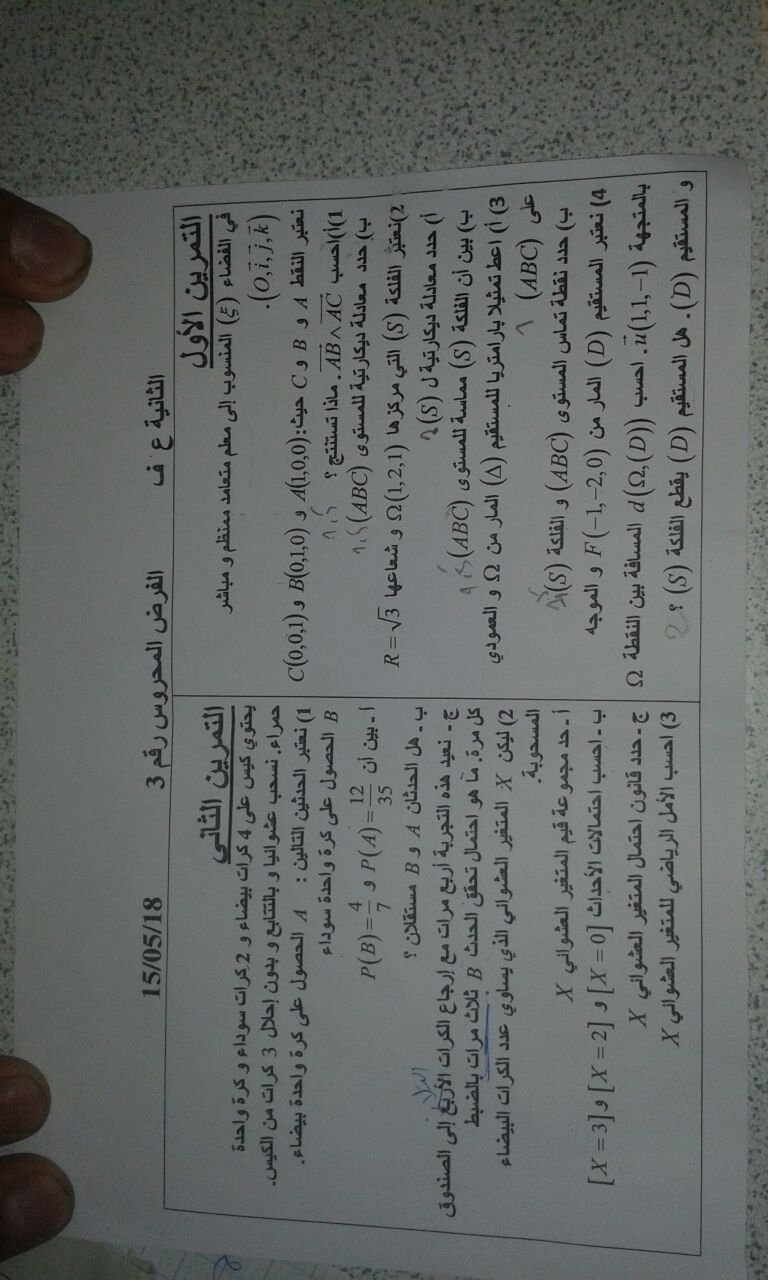 الثانية ع ف
الفرض المحروس رقم 3
15/05/18
التمرين الأول
في الفضاء (ξ) المنسوب إلى معلم متعامد ممنظم و مباشر
(O, i⃗, j⃗, k⃗).
نعتبر النقط A و B و C حيث: A(1,0,0) و B(0,1,0) و C(0,0,1)
1) أ) احسب AB ∧ AC . ماذا تستنتج ؟ 1,5
ب) حدد معادلة ديكارتية للمستوى (ABC) 1,5
2) نعتبر الفلكة (S) التي مركزها Ω(1,2,1) و شعاعها R = √3
أ) حدد معادلة ديكارتية ل (S) 2
ب) بين أن الفلكة (S) مماسة للمستوى (ABC) 1,5
3) أ) اعط تمثيلا بارامتريا للمستقيم (Δ) المار من Ω و العمودي
على (ABC) 1
ب) حدد نقطة تماس المستوى (ABC) و الفلكة (S)
4) نعتبر المستقيم (D) المار من F(−1,−2,0) و الموجه
بالمتجهة u⃗(1,1,−1). احسب d(Ω,(D)) المسافة بين النقطة Ω
و المستقيم (D). هل المستقيم (D) يقطع الفلكة (S) ؟ 2
التمرين الثاني
يحتوي كيس على 4 كرات بيضاء و 2 كرات سوداء و كرة واحدة
حمراء. نسحب عشوائيا و بالتتابع و بدون إحلال 3 كرات من الكيس.
1) نعتبر الحدثين التاليين : A الحصول على كرة واحدة بيضاء.
B الحصول على كرة واحدة سوداء
أ - بين أن P(A) = 12/35 و P(B) = 4/7
ب - هل الحدثان A و B مستقلان ؟
ج - نعيد هذه التجربة أربع مرات مع إرجاع الكرات الأربع إلى الصندوق
كل مرة. ما هو احتمال تحقق الحدث B ثلاث مرات بالضبط
2) ليكن X المتغير العشوائي الذي يساوي عدد الكرات البيضاء
المسحوبة.
أ - حد مجموعة قيم المتغير العشوائي X
ب - احسب احتمالات الأحداث [X = 0] و [X = 2] و [X = 3]
ج - حدد قانون احتمال المتغير العشوائي X
3) احسب الأمل الرياضي للمتغير العشوائي X